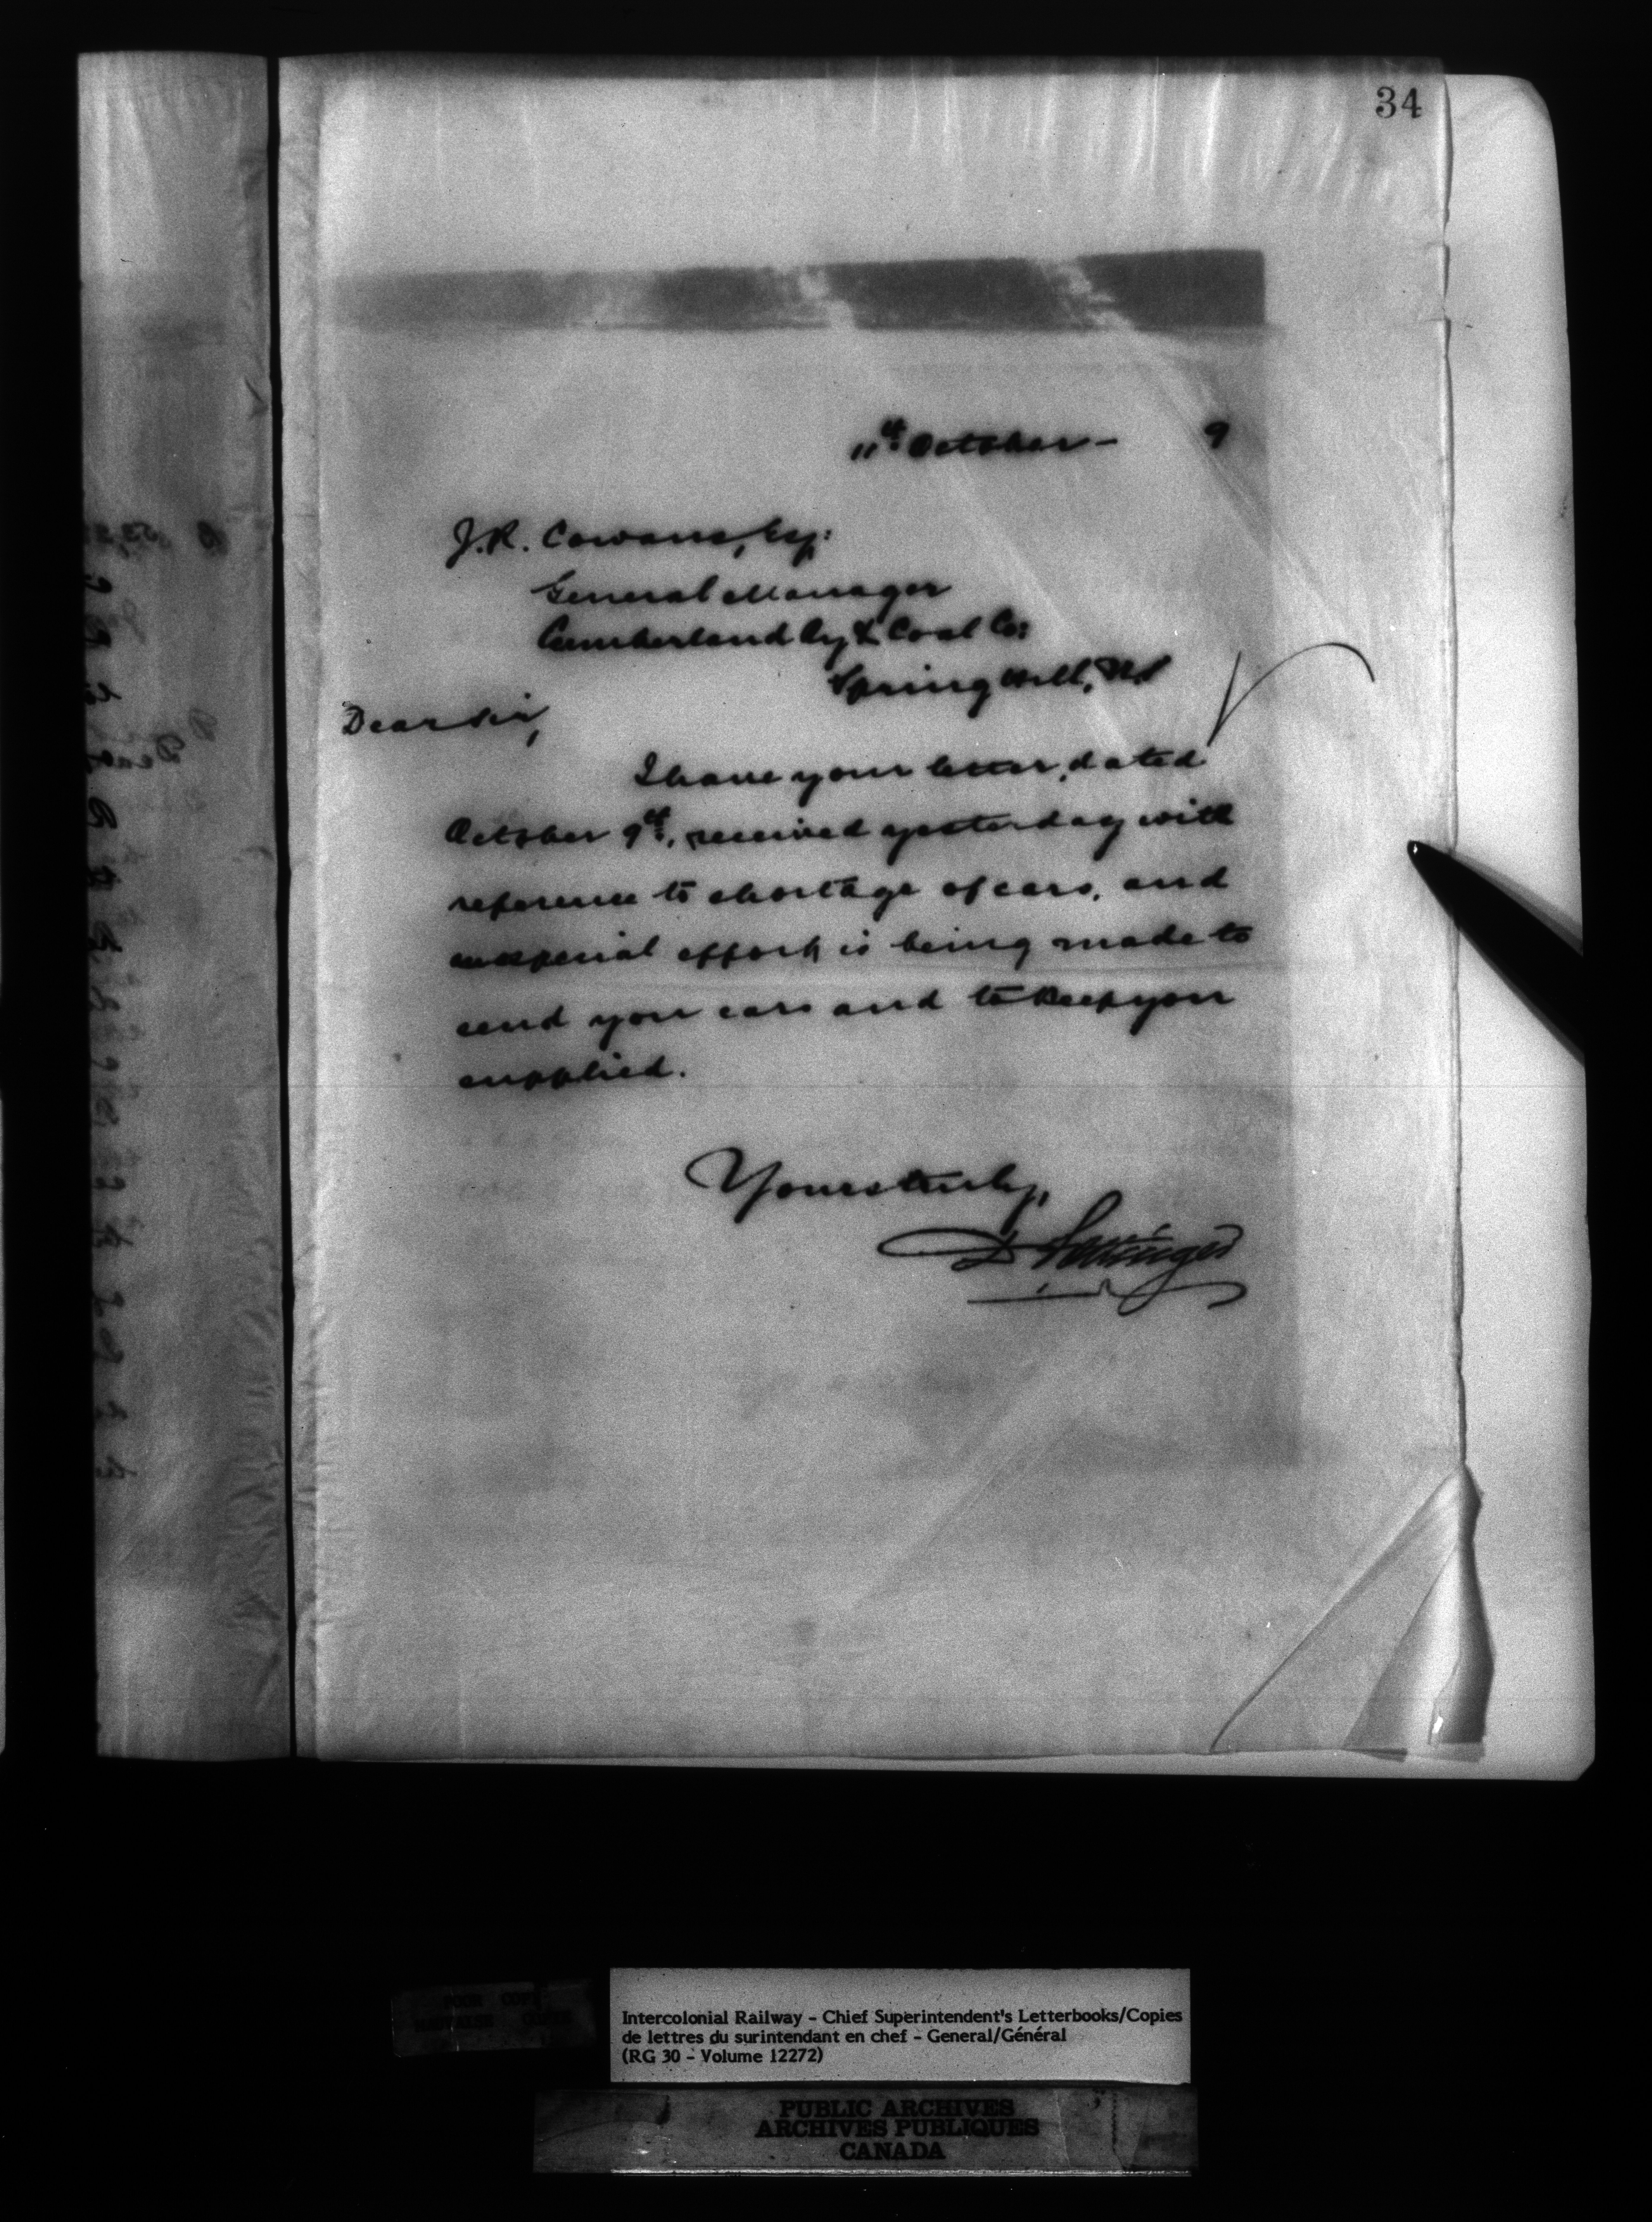 34
11th October - 9
J.R. Cowans, Esq:
General Manager
Cumberland Ry & Coal Co:
Spring Hill, NS
Dear Sir,
I have your letter, dated
October 9th, received yesterday with
reference to shortage of cars, and
especial effort is being made to
send you cars and to keep you
supplied.
Yours truly,
D Pottinger
Intercolonial Railway - Chief Superintendent's Letterbooks/Copies
de lettres du surintendant en chef - General/Général
(RG 30 - Volume 12272)
PUBLIC ARCHIVES
ARCHIVES PUBLIQUES
CANADA